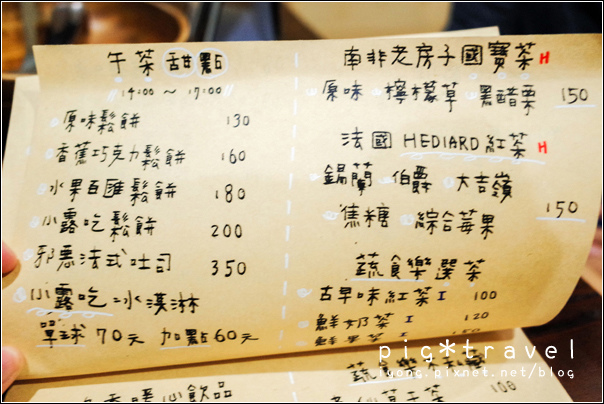 午茶甜點
14:00 ~ 17:00
原味鬆餅 130
香蕉巧克力鬆餅 160
水果百匯鬆餅 180
小露吃鬆餅 200
邪惡法式吐司 350
小露吃冰淇淋
單球 70元 加點60元
暖心飲品
南非老房子國寶茶 H
原味 檸檬草 黑醋栗 150
法國 HEDIARD 紅茶 H
錫蘭 伯爵 大吉嶺
焦糖 綜合莓果 150
蔬食樂選茶
古早味紅茶 I 100
鮮奶茶 I 120
150
蔬食
100
pig*travel
iyong.pixnet.net/blog